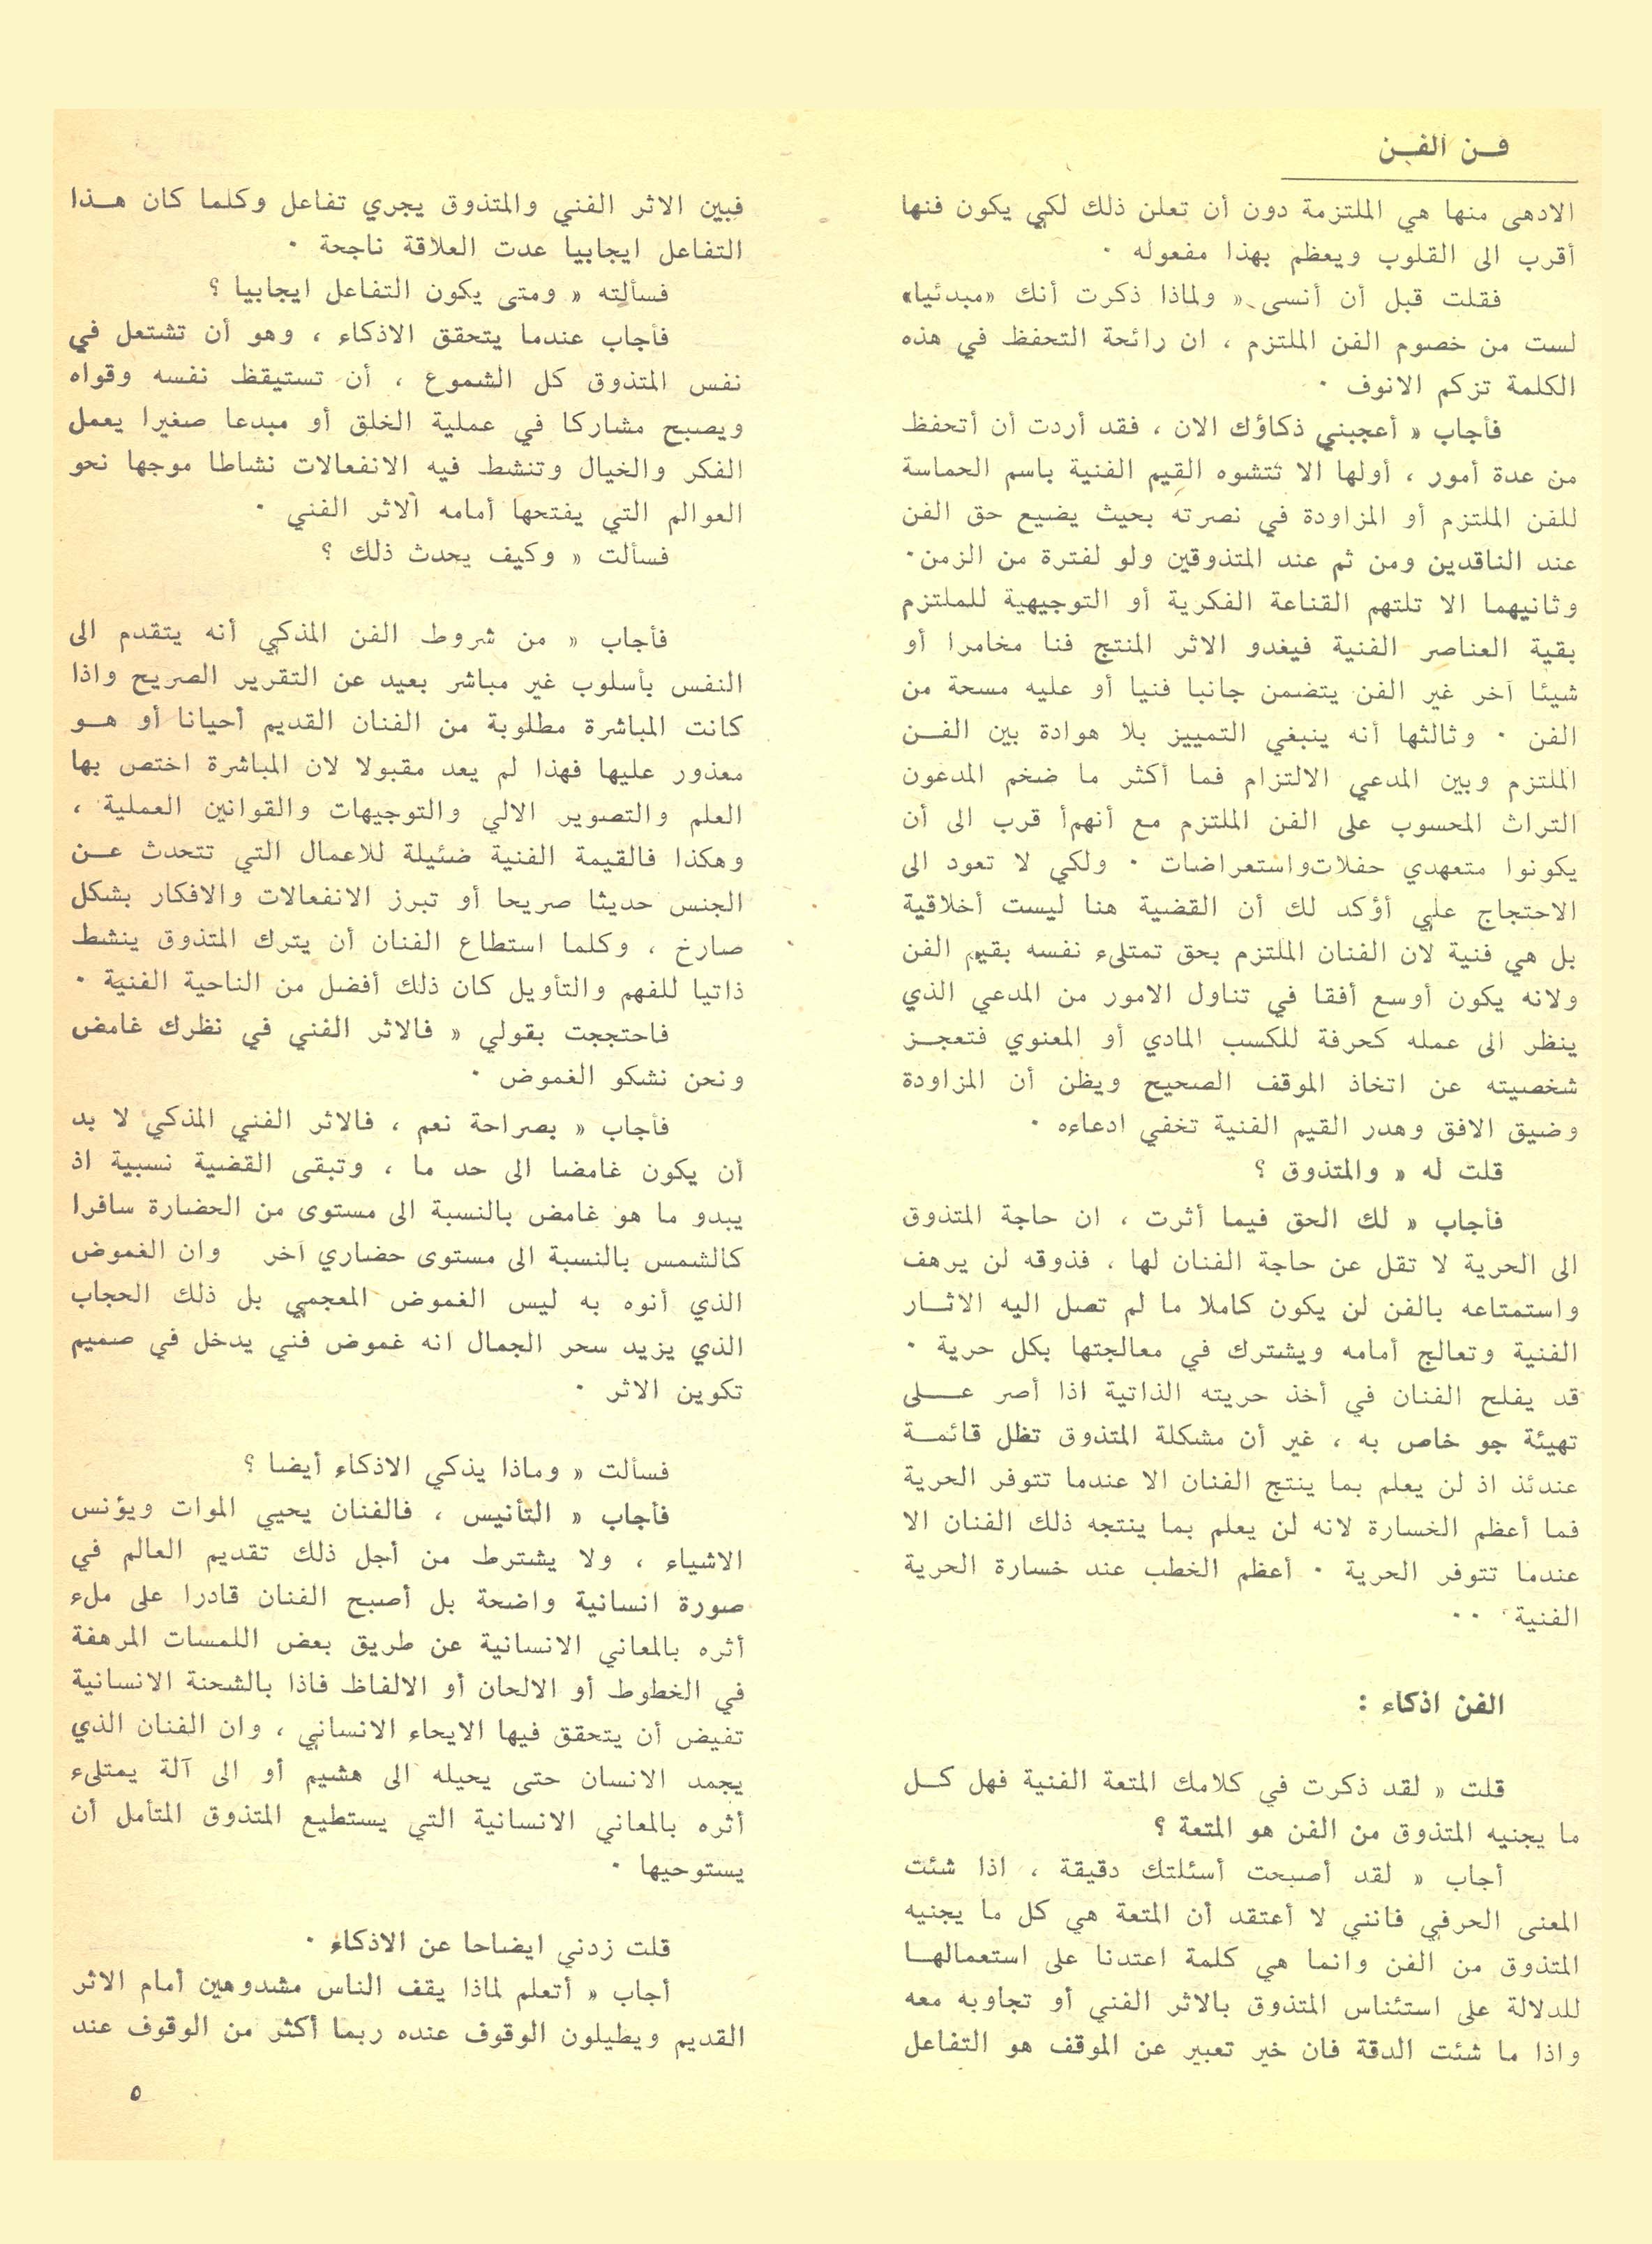 فـن الفـن
الادهى منها هي الملتزمة دون أن تعلن ذلك لكي يكون فنها
أقرب الى القلوب ويعظم بهذا مفعوله ٠
فقلت قبل أن أنسى « ولماذا ذكرت أنك «مبدئيا»
لست من خصوم الفن الملتزم ، ان رائحة التحفظ في هذه
الكلمة تزكم الانوف ٠
فأجاب « أعجبني ذكاؤك الان ، فقد أردت أن أتحفظ
من عدة أمور ، أولها الا تتشوه القيم الفنية باسم الحماسة
للفن الملتزم أو المزاودة في نصرته بحيث يضيع حق الفن
عند الناقدين ومن ثم عند المتذوقين ولو لفترة من الزمن٠
وثانيهما الا تلتهم القناعة الفكرية أو التوجيهية للملتزم
بقية العناصر الفنية فيغدو الاثر المنتج فنا مخامرا أو
شيئا آخر غير الفن يتضمن جانبا فنيا أو عليه مسحة من
الفن ٠ وثالثها أنه ينبغي التمييز بلا هوادة بين الفـن
الملتزم وبين المدعي الالتزام فما أكثر ما ضخم المدعون
التراث المحسوب على الفن الملتزم مع أنهمأ قرب الى أن
يكونوا متعهدي حفلات واستعراضات ٠ ولكي لا تعود الى
الاحتجاج علي أؤكد لك أن القضية هنا ليست أخلاقية
بل هي فنية لان الفنان الملتزم بحق تمتلىء نفسه بقيم الفن
ولانه يكون أوسع أفقا في تناول الامور من المدعي الذي
ينظر الى عمله كحرفة للكسب المادي أو المعنوي فتعجـز
شخصيته عن اتخاذ الموقف الصحيح ويظن أن المزاودة
وضيق الافق وهدر القيم الفنية تخفي ادعاءه ٠
قلت له « والمتذوق ؟
فأجاب « لك الحق فيما أثرت ، ان حاجة المتذوق
الى الحرية لا تقل عن حاجة الفنان لها ، فذوقه لن يرهف
واستمتاعه بالفن لن يكون كاملا ما لم تصل اليه الاثـار
الفنية وتعالج أمامه ويشترك في معالجتها بكل حرية ٠
قد يفلح الفنان في أخذ حريته الذاتية اذا أصر عـلى
تهيئة جو خاص به ، غير أن مشكلة المتذوق تظل قائمـة
عندئذ اذ لن يعلم بما ينتج الفنان الا عندما تتوفر الحرية
فما أعظم الخسارة لانه لن يعلم بما ينتجه ذلك الفنان الا
عندما تتوفر الحرية ٠ أعظم الخطب عند خسارة الحرية
الفنية ٠٠
الفن اذكاء :
قلت « لقد ذكرت في كلامك المتعة الفنية فهل كـل
ما يجنيه المتذوق من الفن هو المتعة ؟
أجاب « لقد أصبحت أسئلتك دقيقة ، اذا شئت
المعنى الحرفي فانني لا أعتقد أن المتعة هي كل ما يجنيه
المتذوق من الفن وانما هي كلمة اعتدنا على استعمالهـا
للدلالة على استئناس المتذوق بالاثر الفني أو تجاوبه معه
واذا ما شئت الدقة فان خير تعبير عن الموقف هو التفاعل
فبين الاثر الفني والمتذوق يجري تفاعل وكلما كان هـذا
التفاعل ايجابيا عدت العلاقة ناجحة ٠
فسألته « ومتى يكون التفاعل ايجابيا ؟
فأجاب عندما يتحقق الاذكاء ، وهو أن تشتعل في
نفس المتذوق كل الشموع ، أن تستيقظ نفسه وقواه
ويصبح مشاركا في عملية الخلق أو مبدعا صغيرا يعمل
الفكر والخيال وتنشط فيه الانفعالات نشاطا موجها نحو
العوالم التي يفتحها أمامه الاثر الفني ٠
فسألت « وكيف يحدث ذلك ؟
فأجاب « من شروط الفن المذكي أنه يتقدم الى
النفس بأسلوب غير مباشر بعيد عن التقرير الصريح واذا
كانت المباشرة مطلوبة من الفنان القديم أحيانا أو هـو
معذور عليها فهذا لم يعد مقبولا لان المباشرة اختص بها
العلم والتصوير الالي والتوجيهات والقوانين العملية ،
وهكذا فالقيمة الفنية ضئيلة للاعمال التي تتحدث عـن
الجنس حديثا صريحا أو تبرز الانفعالات والافكار بشكل
صارخ ، وكلما استطاع الفنان أن يترك المتذوق ينشط
ذاتيا للفهم والتأويل كان ذلك أفضل من الناحية الفنية ٠
فاحتججت بقولي « فالاثر الفني في نظرك غامض
ونحن نشكو الغموض ٠
فأجاب « بصراحة نعم ، فالاثر الفني المذكي لا بد
أن يكون غامضا الى حد ما ، وتبقى القضية نسبية اذ
يبدو ما هو غامض بالنسبة الى مستوى من الحضارة سافرا
كالشمس بالنسبة الى مستوى حضاري آخر وان الغموض
الذي أنوه به ليس الغموض المعجمي بل ذلك الحجاب
الذي يزيد سحر الجمال انه غموض فني يدخل في صميم
تكوين الاثر ٠
فسألت « وماذا يذكي الاذكاء أيضا ؟
فأجاب « التأنيس ، فالفنان يحيي الموات ويؤنس
الاشياء ، ولا يشترط من أجل ذلك تقديم العالم في
صورة انسانية واضحة بل أصبح الفنان قادرا على ملء
أثره بالمعاني الانسانية عن طريق بعض اللمسات المرهفة
في الخطوط أو الالحان أو الالفاظ فاذا بالشحنة الانسانية
تفيض أن يتحقق فيها الايحاء الانساني ، وان الفنان الذي
يجمد الانسان حتى يحيله الى هشيم أو الى آلة يمتلىء
أثره بالمعاني الانسانية التي يستطيع المتذوق المتأمل أن
يستوحيها ٠
قلت زدني ايضاحا عن الاذكاء ٠
أجاب « أتعلم لماذا يقف الناس مشدوهين أمام الاثر
القديم ويطيلون الوقوف عنده ربما أكثر من الوقوف عند
٥